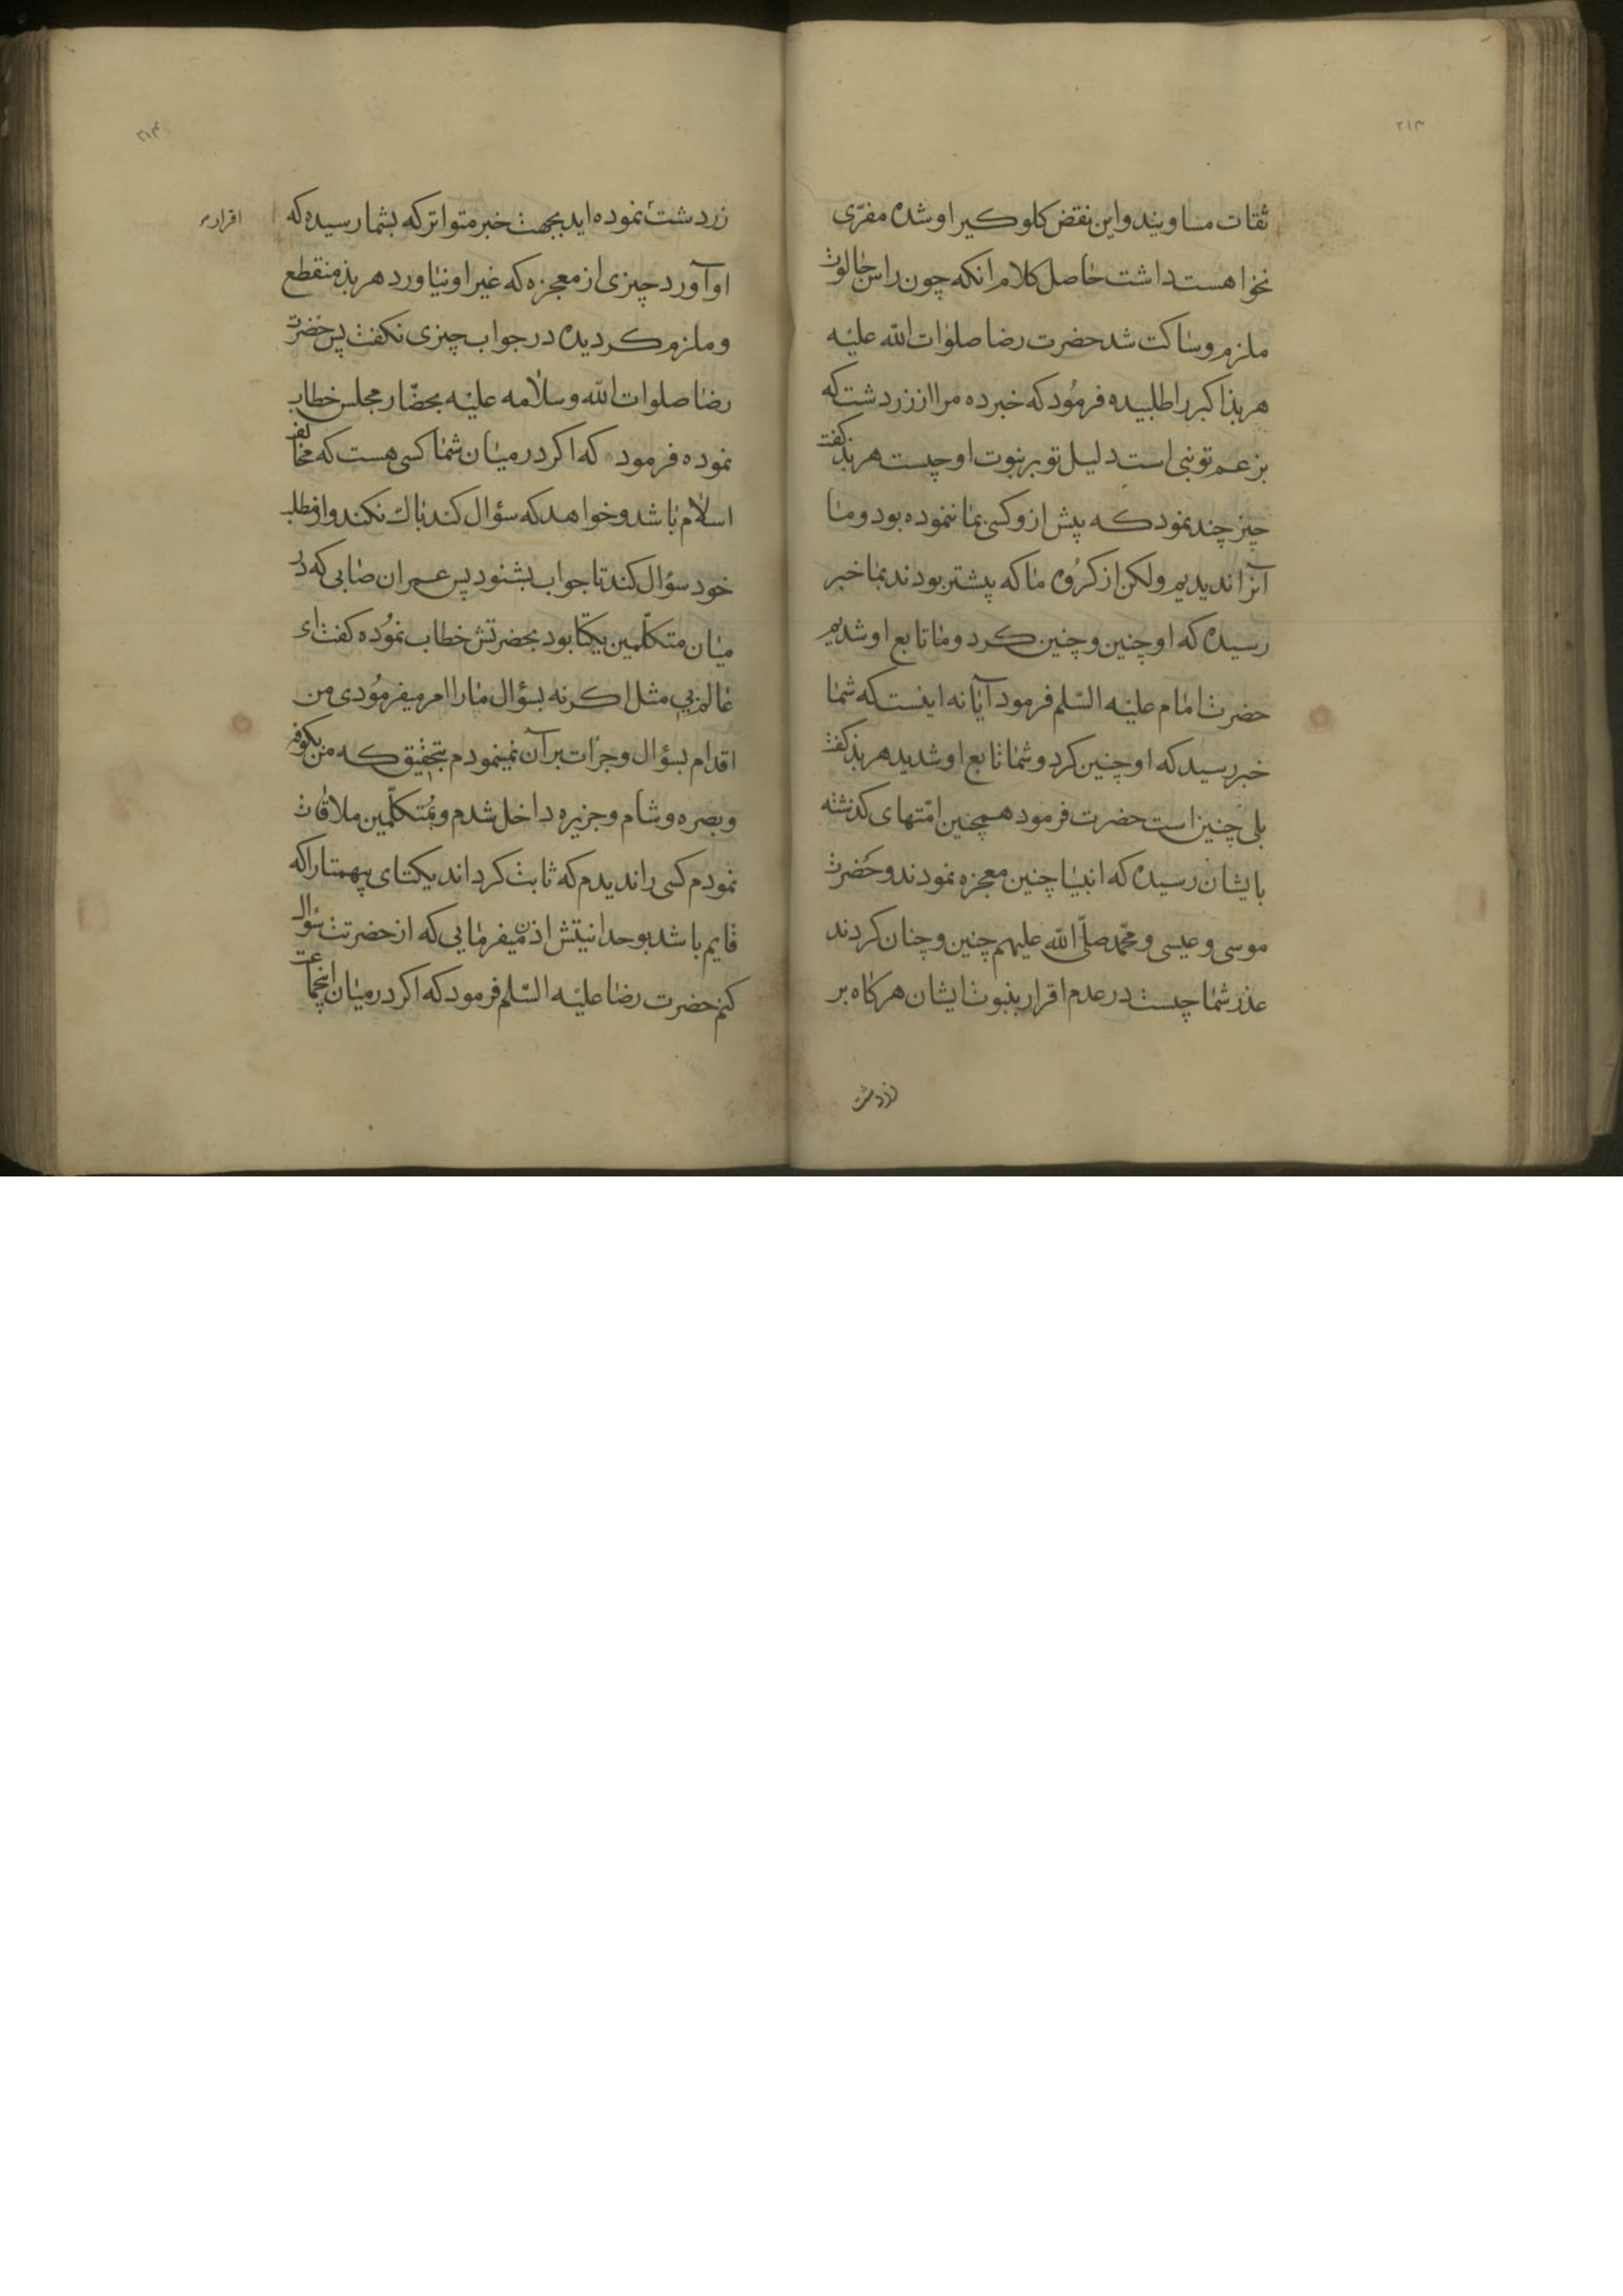 ۲۱۳
ثقات مساویند و این نقض کلوکیر او شده مفرّی
نخواهست داشت حاصل کلام انکه چون راس جالوت
ملزم و ساکت شد حضرت رضا صلوات الله علیه
هربذ اکبر را طلبیده فرمود که خبر ده مرا از زردشت که
بزعم تو نبی است دلیل تو بر نبوت او چیست هربذ کفت
چیز چند نمود که پیش ازو کسی بما ننموده بود و ما
آنرا ندیدیم ولکن از کروه ما که پیشتر بودند بما خبر
رسیده که او چنین و چنین کرد و ما تابع او شدیم
حضرت امام علیه السّلم فرمود آیا نه اینست که شما
خبر رسید که او چنین کرد و شما تابع او شدید هربذ کفت
بلی چنین است حضرت فرمود همچنین امّتهای کذشته
بایشان رسیده که انبیا چنین معجزه نمودند و حضرت
موسی و عیسی و محمّد صلّی الله علیهم چنین و چنان کردند
عذر شما چیست در عدم اقرار بنبوت ایشان هرکاه بر
زردشت
۲۱۴
زردشت نموده اید بجهت خبر متواتر که بشما رسیده که
اقرار
او آورد چیزی از معجزه که غیر او نیاورد هربذ منقطع
و ملزم کردیده در جواب چیزی نکفت پس حضرت
رضا صلوات الله و سلامه علیه بحضّار مجلس خطاب
نموده فرمود که اکر در میان شما کسی هست که مخالف
اسلام باشد و خواهد که سؤال کند باک نکند و از مطلب
خود سؤال کند تا جواب بشنود پس عمران صابی که در
میان متکلّمین یکتا بود بحضرتش خطاب نموده کفت ای
عالم بی مثل اکر نه بسؤال مارا امر میفرمودی من
اقدام بسؤال و جرات بر آن نمینمودم بتحقیق که من بکوفه
و بصره و شام و جزیره داخل شدم و بمتکلّمین ملاقات
نمودم کسی را ندیدم که ثابت کرداند یکتای بیهمتا را که
قایم باشد بوحدانیتش اذن میفرمایی که از حضرتت سؤال
کنم حضرت رضا علیه السّلم فرمود که اکر در میان اینجماعت